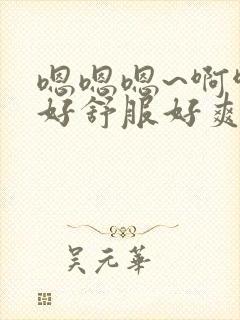 嗯嗯嗯~啊
好舒服好爽
吴元華